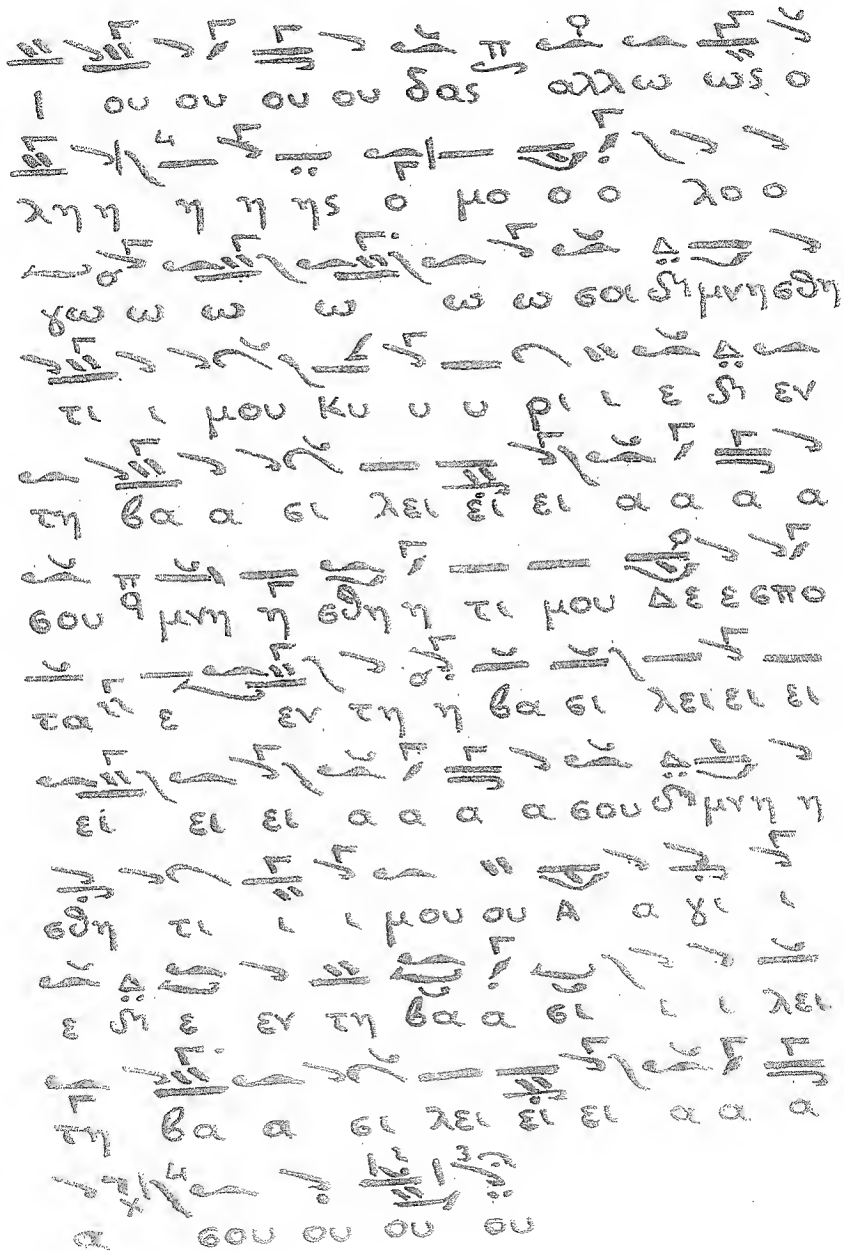 Ι ου ου ου ου δας αλλω ως ο
λη η η η ης ο μο ο ο λο ο
γω ω ω ω ω ω σοι μνη σθη
τι ι μου Κυ υ υ ρι ι ε εν
τη βα α σι λει ει ει α α α α
σου μνη η σθη η τι μου Δε ε σπο
τα ε εν τη η βα σι λει ει ει
ει ει ει α α α α σου μνη η
σθη τι ι ι μου ου Α α γι ι
ε ε εν τη βα α σι ι ι λει
τη βα α σι λει ει ει α α α
α σου ου ου ου